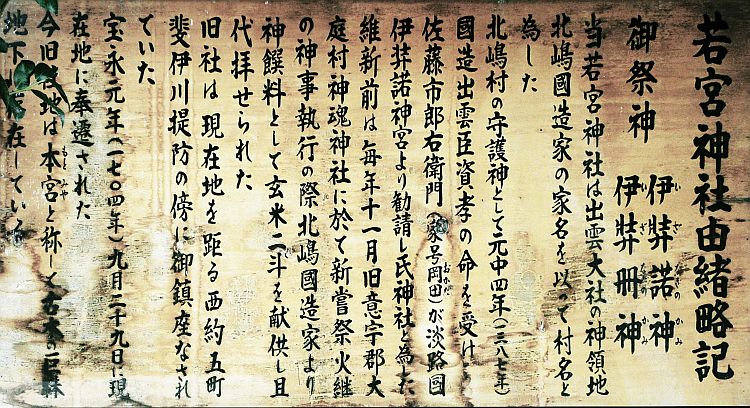 若宮神社由緒略記
御祭神 伊弉諾神
伊弉冊神
当若宮神社は出雲大社の神領地
北嶋國造家の家名を以って村名と
為した
北嶋村の守護神として元中四年(一三八七年)
國造出雲臣資孝の命を受け
佐藤市郎右衛門(家号岡田)が淡路国
伊弉諾神宮より勧請し氏神社と為した
維新前は毎年十一月旧意宇郡大
庭村神魂神社に於て新嘗祭火継
の神事執行の際北嶋國造家より
神饌料として玄米二斗を献供し且
代拝せられた
旧社は現在地を距る西約五町
斐伊川堤防の傍に御鎮座なされ
ていた
宝永元年(一七〇四年)九月二十九日に現
在地に奉遷された
今旧社地は本宮と称して古木の巨株
地下に存在している